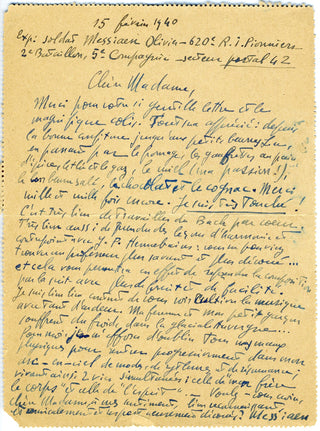 15 février 1940
Exp: soldat Messiaen Olivier - 620e R.I. Pionniers
2e Bataillon, 5e Compagnie - secteur postal 42
Chère Madame,
Merci pour votre si gentille lettre et le
magnifique colis. Tout m'a apprécié: depuis
la bonne confiture jusqu'aux petits beurre Lu,
en passant par le fromage, les gaufrettes au pain
d'épice, et thé et le gas, le miel (ma passion!),
le bon le chocolat et le cognac. Merci
mille et mille fois encore. Je suis très touché!
C'est très bien de travailler du Bach par coeur.
Très bien aussi de prendre des leçons d'harmonie et
contrepoint avec J.P. Hennebains: vous ne pouviez
trouver un professeur plus savant et plus dévoué...
et cela vous permettra en effet de reprendre la composition
par la suite avec plus de fruit et de facilité.
Je suis bien content de vous voir cultiver la musique
avec tant d'ardeur. Ma femme et mon petit garçon
souffrent du froid dans la glaciale Auvergne...
Pour moi, je m'efforce d'oublier tous mes maux
physiques pour entrer progressivement dans mon
arc-en-ciel de modes, de rythmes et de
vivant ainsi 2 vies simultanées: celle de mon frère
le corps et celle de l'esprit - Voulez-vous croire,
chère Madame, à mes sentiments bien reconnaissants
et amicalement et respectueusement dévoués? Messiaen